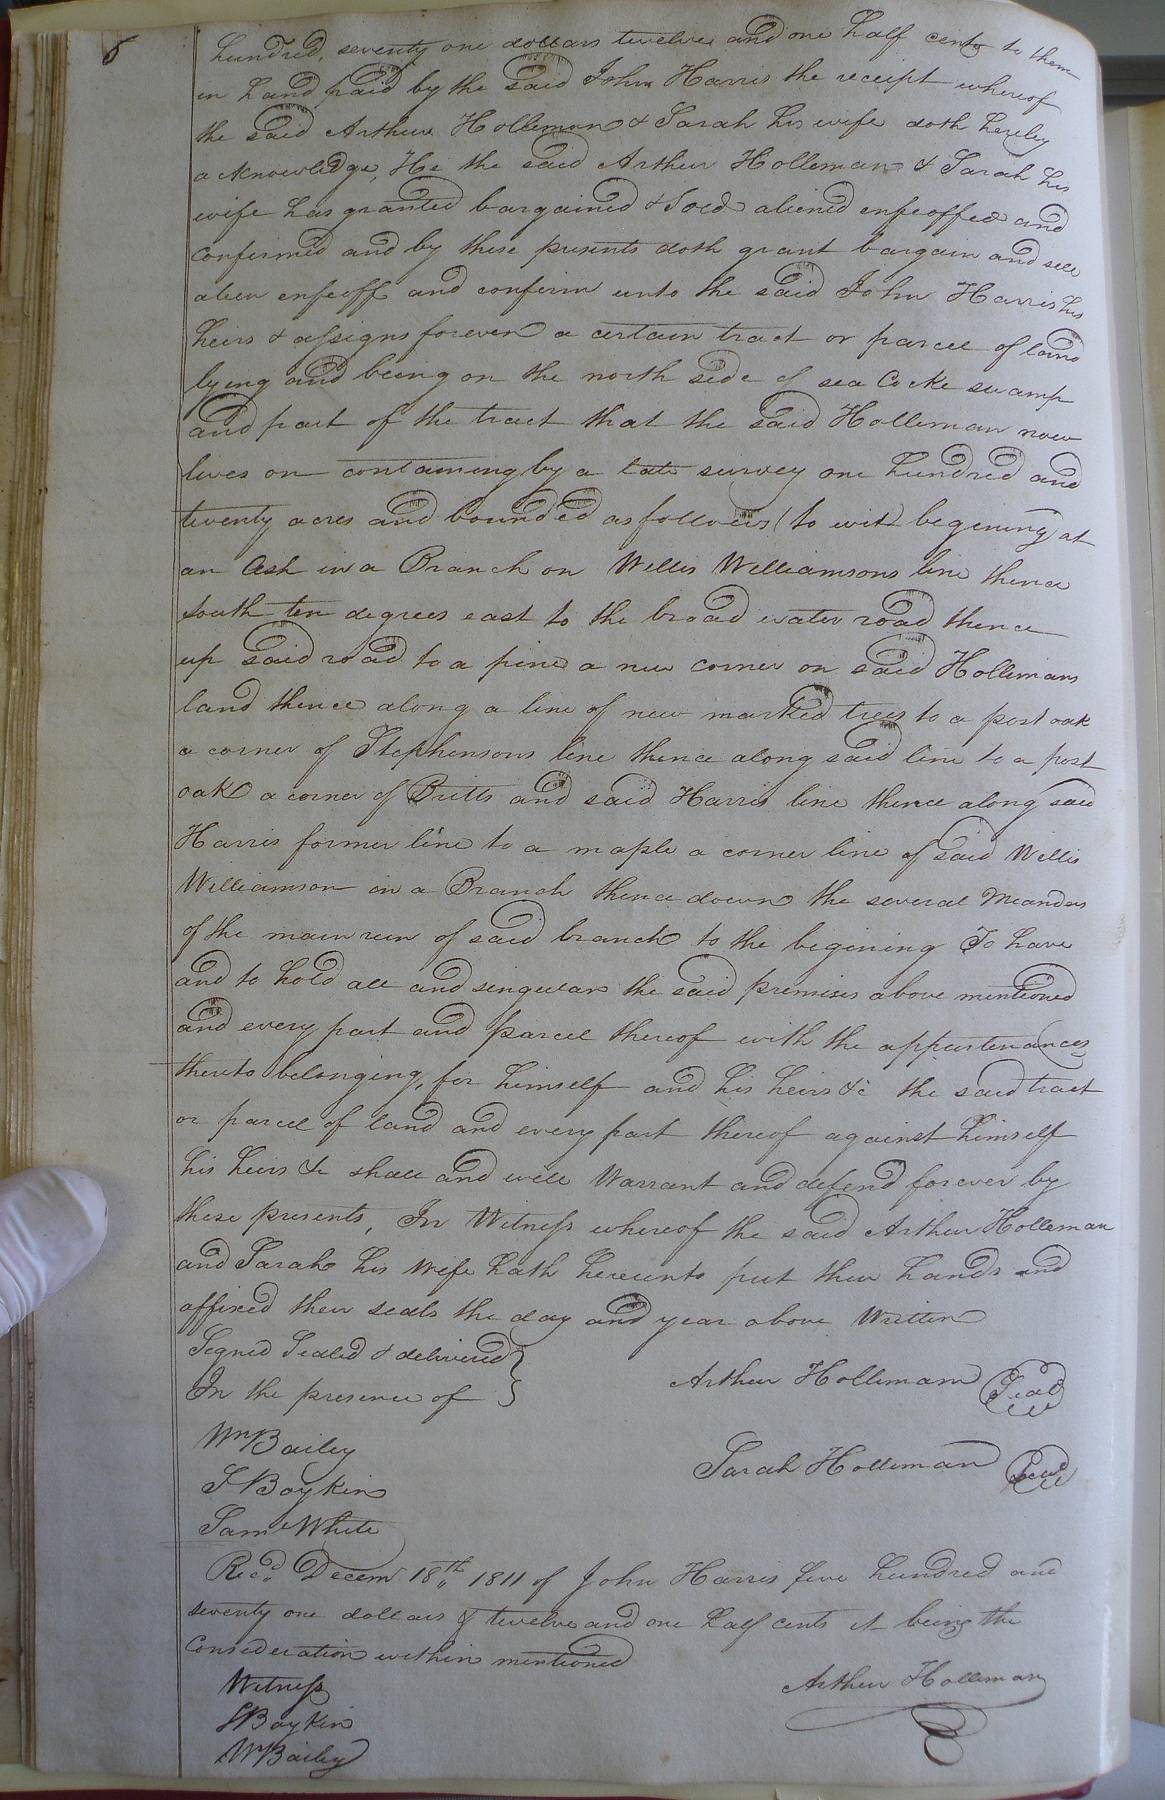 6
hundred, seventy one dollars twelve and one half cents to them
in hand paid by the said John Harris the receipt whereof
the said Arthur Holleman & Sarah his wife doth hereby
acknowledge, He the said Arthur Holleman & Sarah his
wife has granted bargained & Sold aliened enfeoffed and
confirmed and by these presents doth grant bargain and sell
alien enfeoff and confirm unto the said John Harris his
heirs & assigns forever a certain tract or parcel of land
lying and being on the north side of sea Cocke swamp
and part of the tract that the said Holleman now
lives on containing by a late survey one hundred and
twenty acres and bounded as follows (to wit) begening at
an Ash in a Branch on Willis Williamsons line thence
South ten degrees east to the broad water road thence
up said road to a pine a new corner on said Hollimans
land thence along a line of new marked trees to a post oak
a corner of Stephensons line thence along said line to a post
oak a corner of Britts and said Harris line thence along said
Harris former line to a maple a corner line of said Willis
Williamson in a Branch thence down the several Meanders
of the main run of said branch to the begining To have
and to hold all and singular the said premises above mentioned
and every part and parcel thereof with the appurtenances
thereto belonging, for himself and his heirs &c the said tract
or parcel of land and every part thereof against himself
his heirs &c shall and will Warrant and defend forever by
these presents, In Witness whereof the said Arthur Holleman
and Sarah his Wife hath hereunto put their hands and
affixed their seals the day and year above Written
Signed Sealed & delivered }
In the presence of }
Arthur Holleman Seal
Wm Bailey
Sarah Holleman Seal
S Boykin
Saml White
Recd. Decem 18th 1811 of John Harris five hundred and
seventy one dollars & twelve and one half cents it being the
Consideration within mentioned
Witness
Arthur Holleman
S Boykin
Wm Bailey